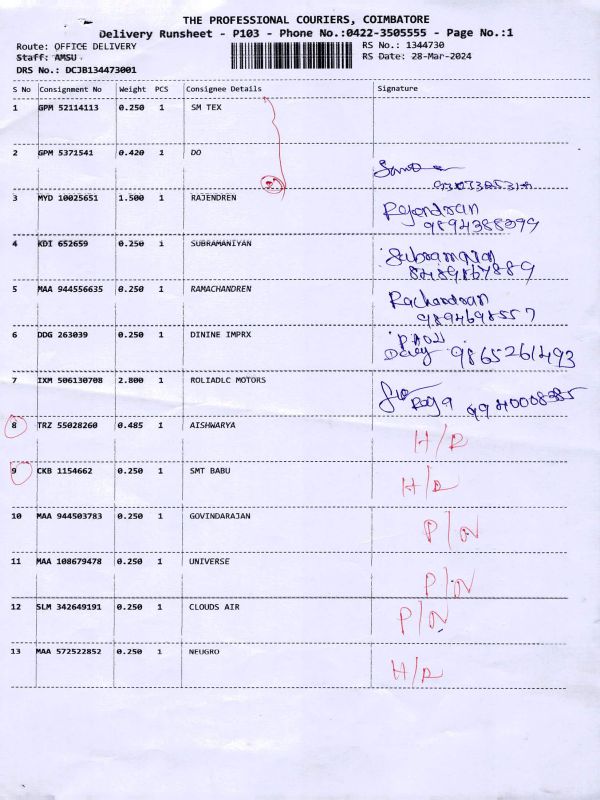 THE PROFESSIONAL COURIERS, COIMBATORE
Delivery Runsheet - P103 - Phone No.:0422-3505555 - Page No.:1
Route: OFFICE DELIVERY RS No.: 1344730
Staff: AMSU RS Date: 28-Mar-2024
DRS No.: DCJB134473001
S No Consignment No Weight PCS Consignee Details Signature
1 GPM 52114113 0.250 1 SM TEX
2 GPM 5371541 0.420 1 DO
3 MYD 10025651 1.500 1 RAJENDREN Rajendran
9894388399
4 KDI 652659 0.250 1 SUBRAMANIYAN Subramanian
8489867889
5 MAA 944556635 0.250 1 RAMACHANDREN Rachandran
9894698557
6 DDG 263039 0.250 1 DININE IMPRX
9865261493
7 IXM 506130708 2.800 1 ROLIADLC MOTORS
Roga 9940008385
8 TRZ 55028260 0.485 1 AISHWARYA H/R
9 CKB 1154662 0.250 1 SMT BABU H/R
10 MAA 944503783 0.250 1 GOVINDARAJAN P/N
11 MAA 108679478 0.250 1 UNIVERSE P/N
12 SLM 342649191 0.250 1 CLOUDS AIR P/N
13 MAA 572522852 0.250 1 NEUGRO H/R